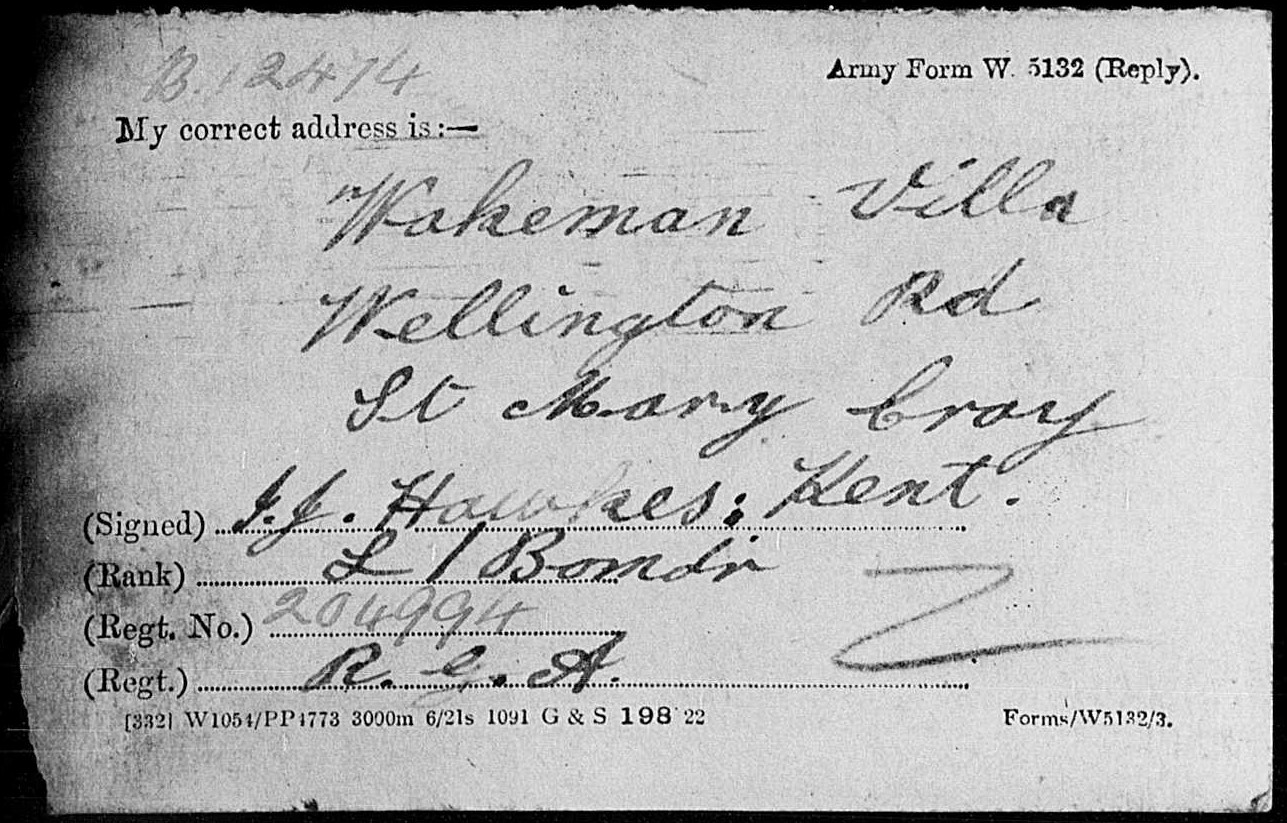 B. 12474
Army Form W. 5132 (Reply).
My correct address is:—
Wakeman Villa
Wellington Rd
St Mary Cray
Kent.
(Signed) J.J. Hawkes:
(Rank) L/Bomdr
(Regt. No.) 204994
(Regt.) R.G.A.
[332] W1054/PP4773 3000m 6/21s 1091 G & S 198 22
Forms/W5132/3.